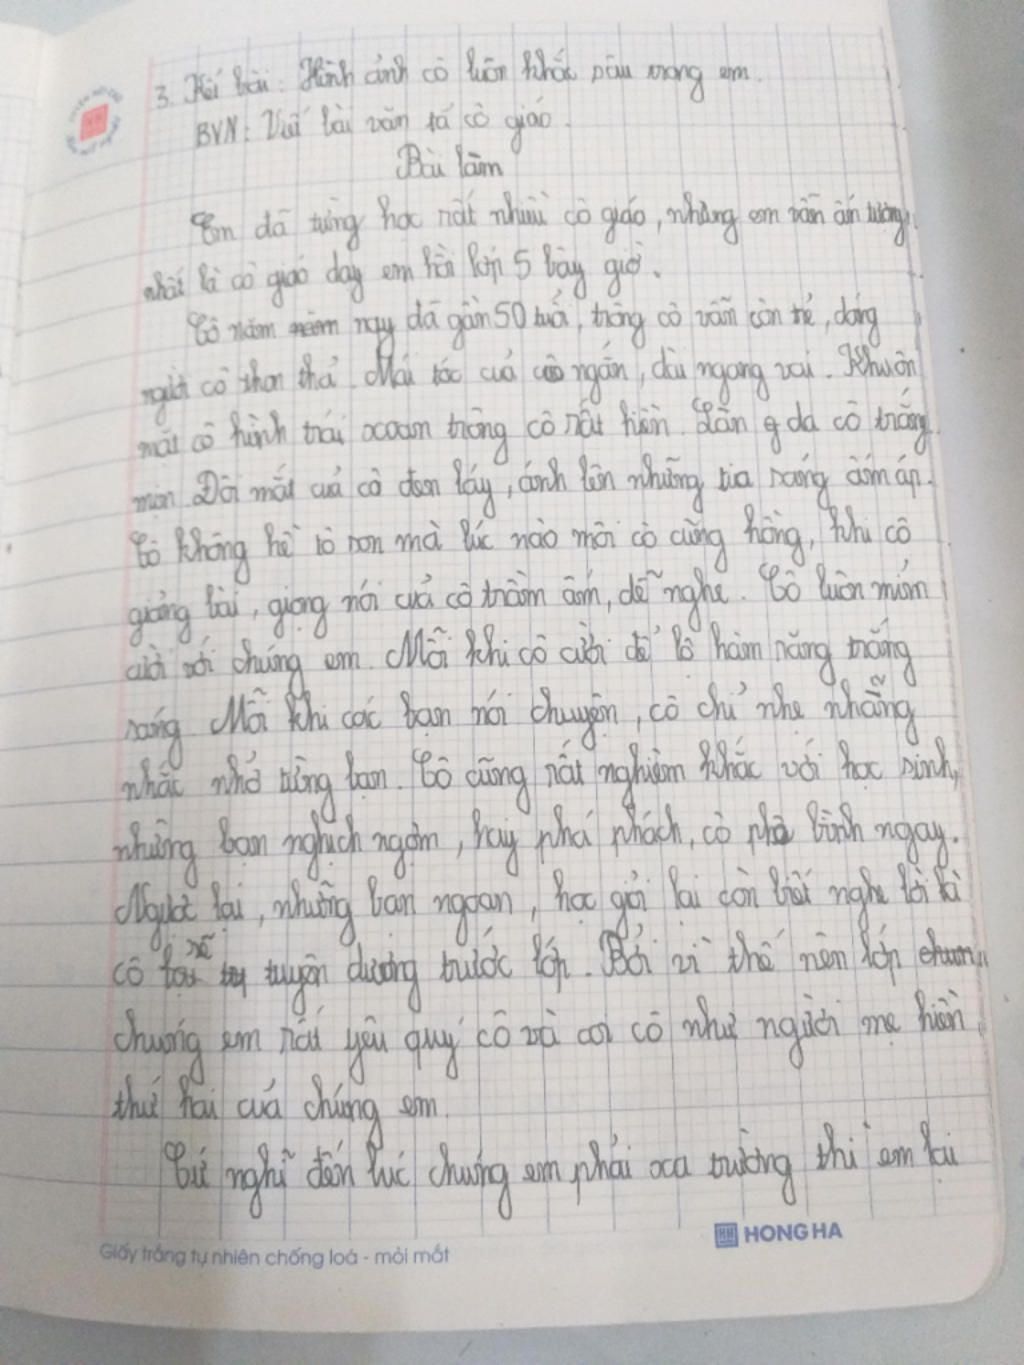 3. Kết bài: Hình ảnh cô luôn khắc sâu trong em.
BVN: Viết bài văn tả cô giáo.
Bài làm
Em đã từng học rất nhiều cô giáo, nhưng em vẫn ấn tượng
nhất là cô giáo dạy em hồi lớp 5 bây giờ.
Cô năm nay đã gần 50 tuổi, trông cô vẫn còn trẻ, dáng
người cô thon thả. Mái tóc cuả cô ngắn, dài ngang vai. Khuôn
mặt cô hình trái xoan trông cô rất hiền. Làn da cô trắng
mịn. Đôi mắt cuả cô đen láy, ánh lên những tia sáng ấm áp.
Cô không hề tô son mà lúc nào môi cô cũng hồng, khi cô
giảng bài, giọng nói cuả cô trầm ấm, dễ nghe. Cô luôn mỉm
cười với chúng em. Mỗi khi cô cười để lộ hàm răng trắng
sáng. Mỗi khi các bạn nói chuyện, cô chỉ nhẹ nhẵng
nhắc nhở từng bạn. Cô cũng rất nghiêm khắc với học sinh,
những bạn nghịch ngợm, hay phá phách, cô phê bình ngay.
Ngược lại, những bạn ngoan, học giỏi lại còn biết nghe lời là
cô sẽ tuyên dương trước lớp. Bởi vì thế nên lớp
chúng em rất yêu quý cô và coi cô như người mẹ hiền
thứ hai cuả chúng em.
Cứ nghĩ đến lúc chúng em phải xa trường thì em lại
HONG HA
Giấy trắng tự nhiên chống loá - mỏi mắt